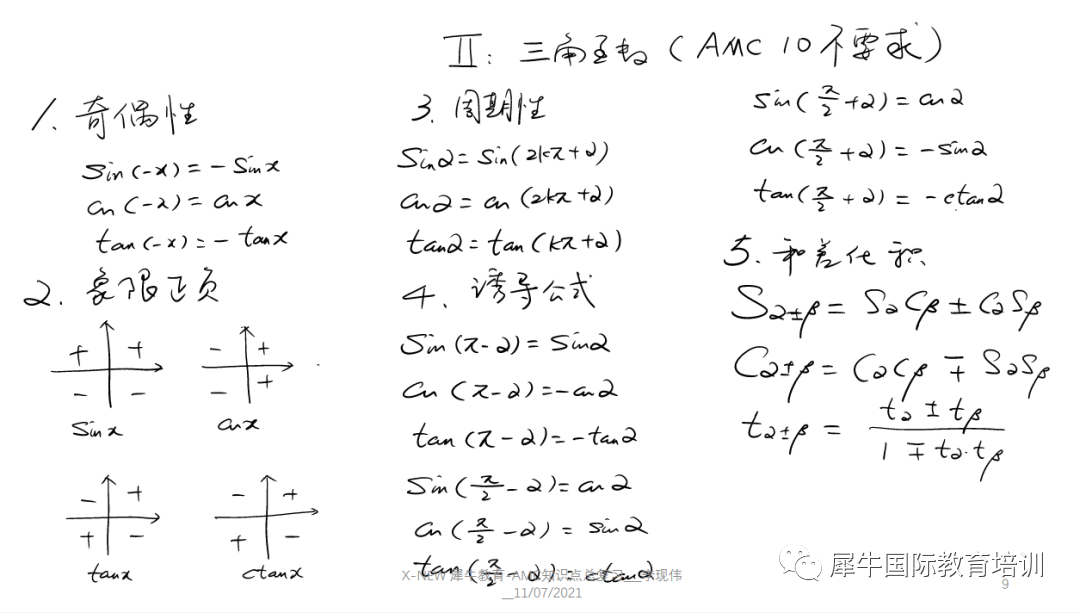 II: 三角函数 (AMC 10 不要求)
1. 奇偶性
sin(-x) = -sinx
cos(-x) = cosx
tan(-x) = -tanx
2. 象限正负
+ +
- -
sinx
- +
- +
cosx
- +
+ -
tanx
- +
+ -
ctanx
3. 周期性
sinα = sin(2kπ+α)
cosα = cos(2kπ+α)
tanα = tan(kπ+α)
4. 诱导公式
sin(π-α) = sinα
cos(π-α) = -cosα
tan(π-α) = -tanα
sin(π/2 - α) = cosα
cos(π/2 - α) = sinα
tan(π/2 - α) = ctanα
sin(π/2 + α) = cosα
cos(π/2 + α) = -sinα
tan(π/2 + α) = -ctanα
5. 和差化积
Sα±β = SαCβ ± CαSβ
Cα±β = CαCβ ∓ SαSβ
tα±β = (tα ± tβ) / (1 ∓ tα·tβ)
X-NEW 犀牛教育-AMC知识点总复习__李现伟
__11/07/2021
犀牛国际教育培训
9